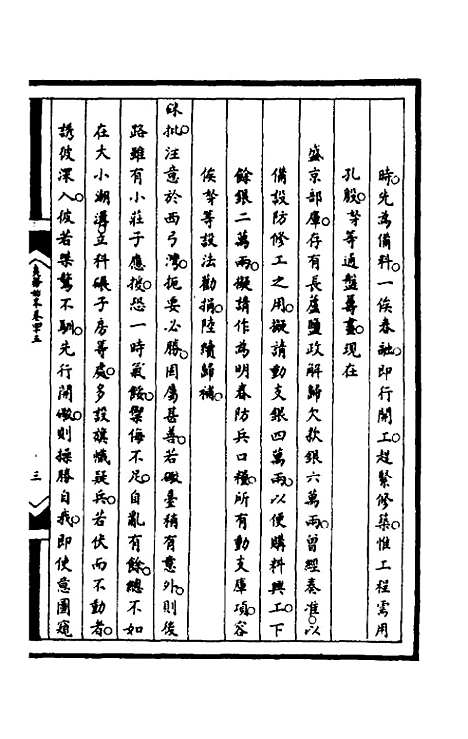 時先為備料一俟春融即行開工趕緊修築惟工程需用
孔殷等通盤籌畫現在
盛京部庫存有長蘆鹽政解歸欠款銀六萬兩曾經奏准以
備設防修工之用擬請動支銀四萬兩以便購料興工下
餘銀二萬兩擬請作為明春防兵口糧所有動支庫項容
俟等設法勸捐陸續歸補
硃批汪意於西弓灣扼要必勝固屬甚善若礮臺稍有意外則後
路雖有小莊子應援恐一時氣餒禦侮不足自亂有餘總不如
在大小湖溝立科碾子房等處多設旗幟疑兵若伏而不動者
誘彼深入彼若桀驁不馴先行開礮則操勝自我即使意圖窺
卷四五
三